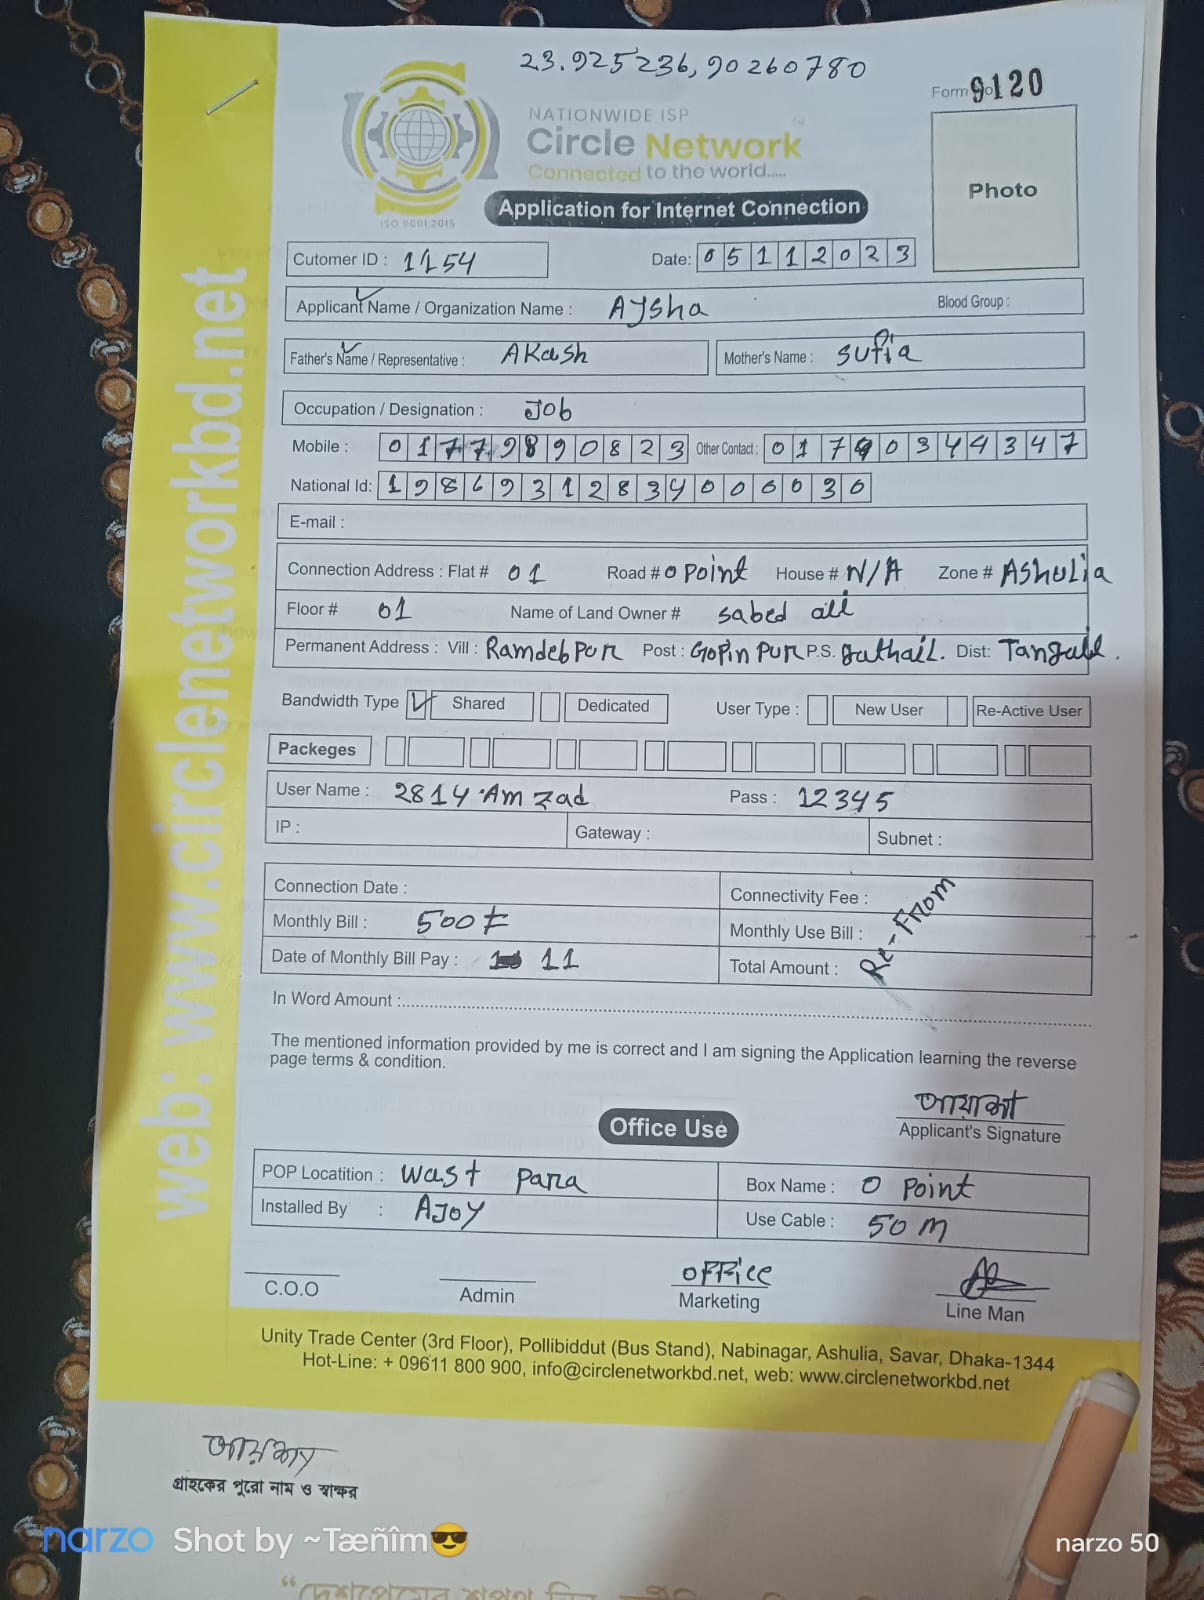 23.925236, 90260780
Form No 9120
NATIONWIDE ISP
Circle Network
Connected to the world.....
ISO 9001:2015
Photo
Application for Internet Connection
Cutomer ID : 1154 Date: 05112023
Applicant Name / Organization Name : Aysha Blood Group :
Father's Name / Representative : Akash Mother's Name : Sufia
Occupation / Designation : Job
Mobile : 01779890823 Other Contact : 01790344347
National Id: 19869312834000030
E-mail :
Connection Address : Flat # 01 Road # 0 Point House # N/A Zone # Ashulia
Floor # 01 Name of Land Owner # sabed ali
Permanent Address : Vill : Ramdebpur Post : Gopinpur P.S. Dist: Tangail.
Bandwidth Type Shared Dedicated User Type : New User Re-Active User
Packeges
User Name : 2814 Amzad Pass : 12345
IP : Gateway : Subnet :
Connection Date : Connectivity Fee :
Monthly Bill : 500 Monthly Use Bill :
Date of Monthly Bill Pay : 11 Total Amount :
Re-From
In Word Amount :
The mentioned information provided by me is correct and I am signing the Application learning the reverse
page terms & condition.
Applicant's Signature
Office Use
POP Locatition : Wast Para Box Name : 0 Point
Installed By : AJOY Use Cable : 50 M
C.O.O Admin OFFice Marketing Line Man
Unity Trade Center (3rd Floor), Pollibiddut (Bus Stand), Nabinagar, Ashulia, Savar, Dhaka-1344
Hot-Line: + 09611 800 900, info@circlenetworkbd.net, web: www.circlenetworkbd.net
web: www.circlenetworkbd.net
গ্রাহকের পুরো নাম ও স্বাক্ষর
narzo Shot by ~Tæñîm😎 narzo 50